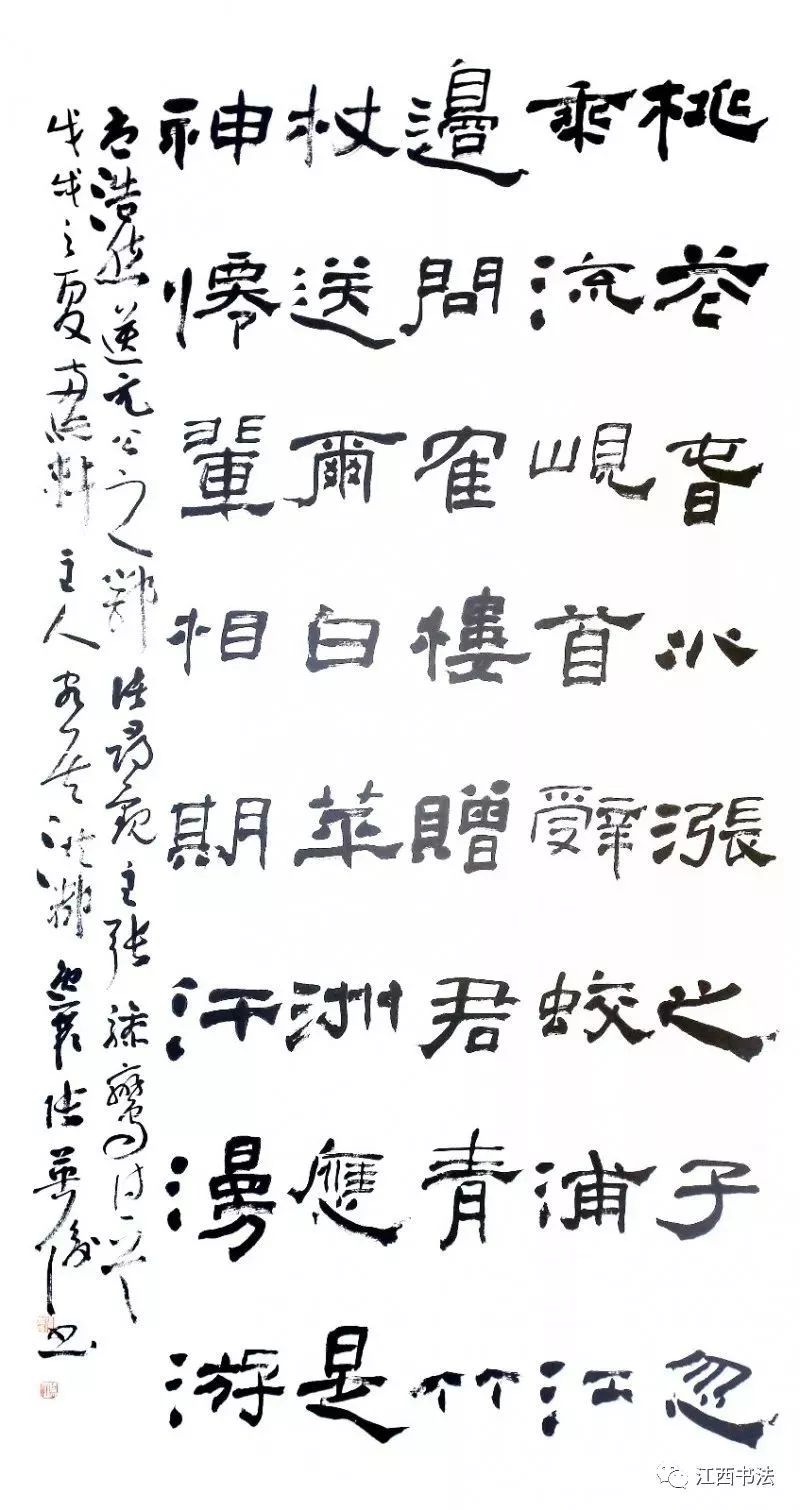 桃花春水漲之子忽
乘流峴首辭蛟浦江
邊問隺樓贈君青竹
杖送爾白苹洲應是
神僊輩相期汗漫游
孟浩然送元公之鄂渚尋觀主張驂鸞詩一首
戊戌之夏南主人客居洪都書
江西书法